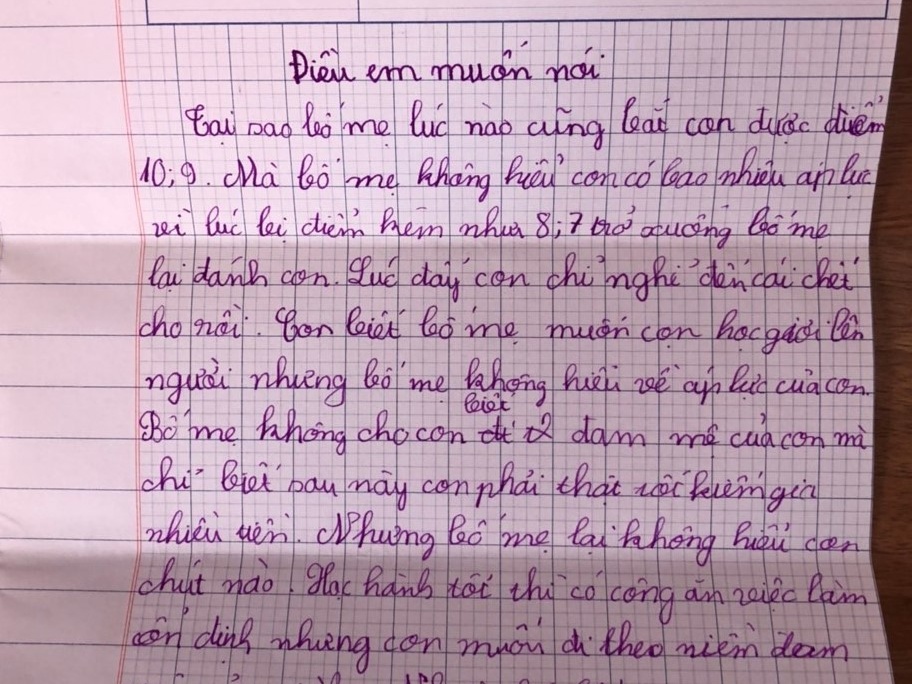 Điều em muốn nói
Tại sao bố mẹ lúc nào cũng bắt con được điểm
10; 9. Mà bố mẹ không hiểu con có bao nhiêu áp lực
vì lúc bị điểm kém như 8; 7 trở xuống bố mẹ
lại đánh con. Lúc đấy con chỉ nghĩ đến cái chết
cho rồi. Con biết bố mẹ muốn con học giỏi lên
người nhưng bố mẹ không hiểu về áp lực của con.
Bố mẹ không cho con biết đam mê của con mà
chỉ biết sau này con phải thật tốt kiếm
nhiều tiền. Nhưng bố mẹ lại không hiểu con
chút nào. Học hành tốt thì có công ăn việc làm
ổn định nhưng con muốn đi theo niềm đam